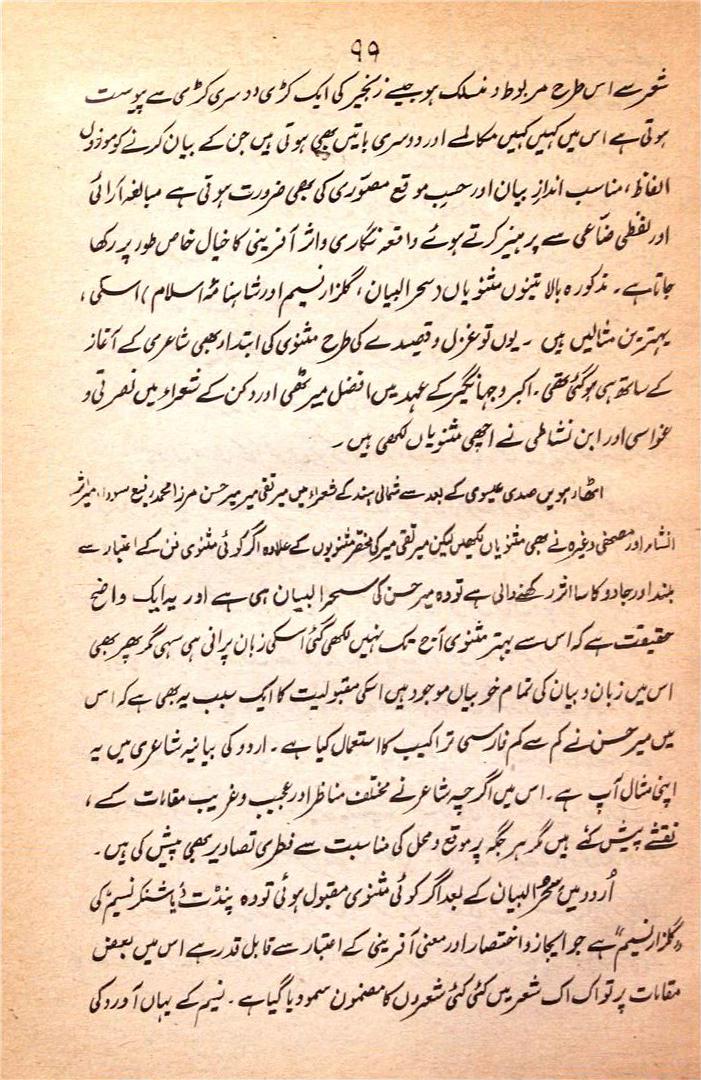 ۹۹
شعر سے اس طرح مربوط و منسلک ہو جیسے زنجیر کی ایک کڑی دوسری کڑی سے پیوست
ہوتی ہے اس میں کہیں کہیں مکالمے اور دوسری باتیں بھی ہوتی ہیں جن کے بیان کرنے کو موزوں
الفاظ، مناسب اندازِ بیان اور حسبِ موقع مصوّری کی بھی ضرورت ہوتی ہے مبالغہ آرائی
اور لفظی صنّاعی سے پرہیز کرتے ہوئے واقعہ نگاری و اثر آفرینی کا خیال خاص طور پر رکھا
جاتا ہے۔ مذکورہ بالا تینوں مثنویاں (سحر البیان، گلزار نسیم اور شاہنامۂ اسلام) اسکی،
بہترین مثالیں ہیں ۔ یوں تو غزل و قصیدے کی طرح مثنوی کی ابتداء بھی شاعری کے آغاز
کے ساتھ ہی ہو گئی تھی۔ اکبر و جہانگیر کے عہد میں افضل میرٹھی اور دکن کے شعراء میں نصرتی و
غواصی اور ابن نشاطی نے اچھی مثنویاں لکھی ہیں ۔
اٹھارہویں صدی عیسوی کے بعد سے شمالی ہند کے شعراء میں میر تقی میر میر حسن مرزا محمد رفیع سودا، میر اثر
انشاء اور مصحفی وغیرہ نے بھی مثنویاں لکھیں لیکن میر تقی میر کی مختصر مثنویوں کے علاوہ اگر کوئی مثنوی فن کے اعتبار سے
بلند اور جادو کا سا اثر رکھنے والی ہے تو وہ میر حسن کی سحر البیان ہی ہے اور یہ ایک واضح
حقیقت ہے کہ اس سے بہتر مثنوی آج تک نہیں لکھی گئی اسکی زبان پرانی ہی سہی مگر پھر بھی
اس میں زبان و بیان کی تمام خوبیاں موجود ہیں اسکی مقبولیت کا ایک سبب یہ بھی ہے کہ اس
میں میر حسن نے کم سے کم فارسی تراکیب کا استعمال کیا ہے ۔ اردو کی بیانیہ شاعری میں یہ
اپنی مثال آپ ہے۔ اس میں اگرچہ شاعر نے مختلف مناظر اور عجیب و غریب مقامات کے،
نقشے پیش کئے ہیں مگر ہر جگہ پر موقع و محل کی مناسبت سے فطری تصاویر بھی پیش کی ہیں۔
اُردو میں سحر البیان کے بعد اگر کوئی مثنوی مقبول ہوئی تو وہ پنڈت دَیا شنکر نسیم کی
”گلزار نسیم“ ہے جو ایجاز و اختصار اور معنی آفرینی کے اعتبار سے قابل قدر ہے اس میں بعض
مقامات پر تو اک اک شعر میں کئی کئی شعروں کا مضمون سمو دیا گیا ہے ۔ نسیم کے یہاں آورد کی